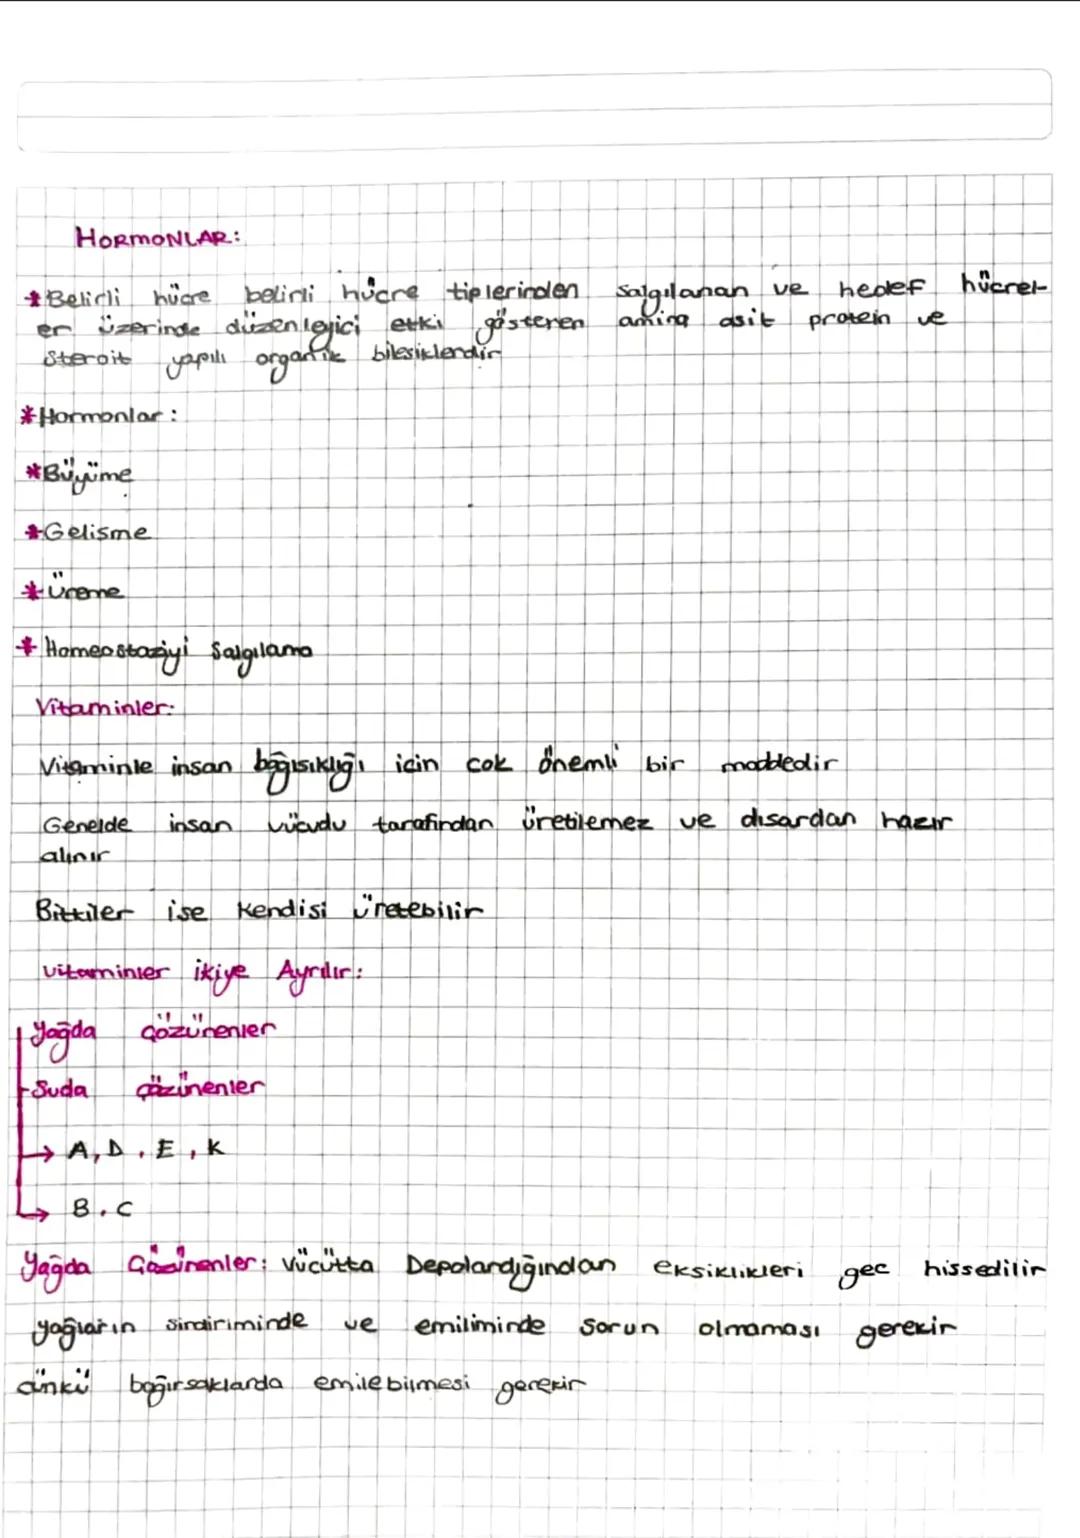 HORMONLAR:
*Belirli hücre belirli hücre tiplerinden salgılanan ve hedef hücrel-
er üzerinde düzenleyici etki gösteren amino asit protein ve
Steroit yapılı organik bilesiklerdir
*Hormonlar:
*Büyüme
*Gelisme
*Üreme
*Homeostaziyi Salgılama
Vitaminler:
Vitaminle insan bağısıklığı icin cok önemli bir maddedir
Genelde insan vücudu tarafından üretilemez ve dısardan hazır
alınır
Bitkiler ise Kendisi üretebilir
vitaminler ikiye Ayrılır:
Yağda çözünenler
Suda çözünenler
→ A, D, E, K
→ B, C
Yağda Çözünenler: Vücütta Depolandığından eksiklikleri gec hissedilir
yağların sindiriminde ve emiliminde Sorun olmaması gerekir
çünkü bağırsaklarda emilebilmesi gerekir